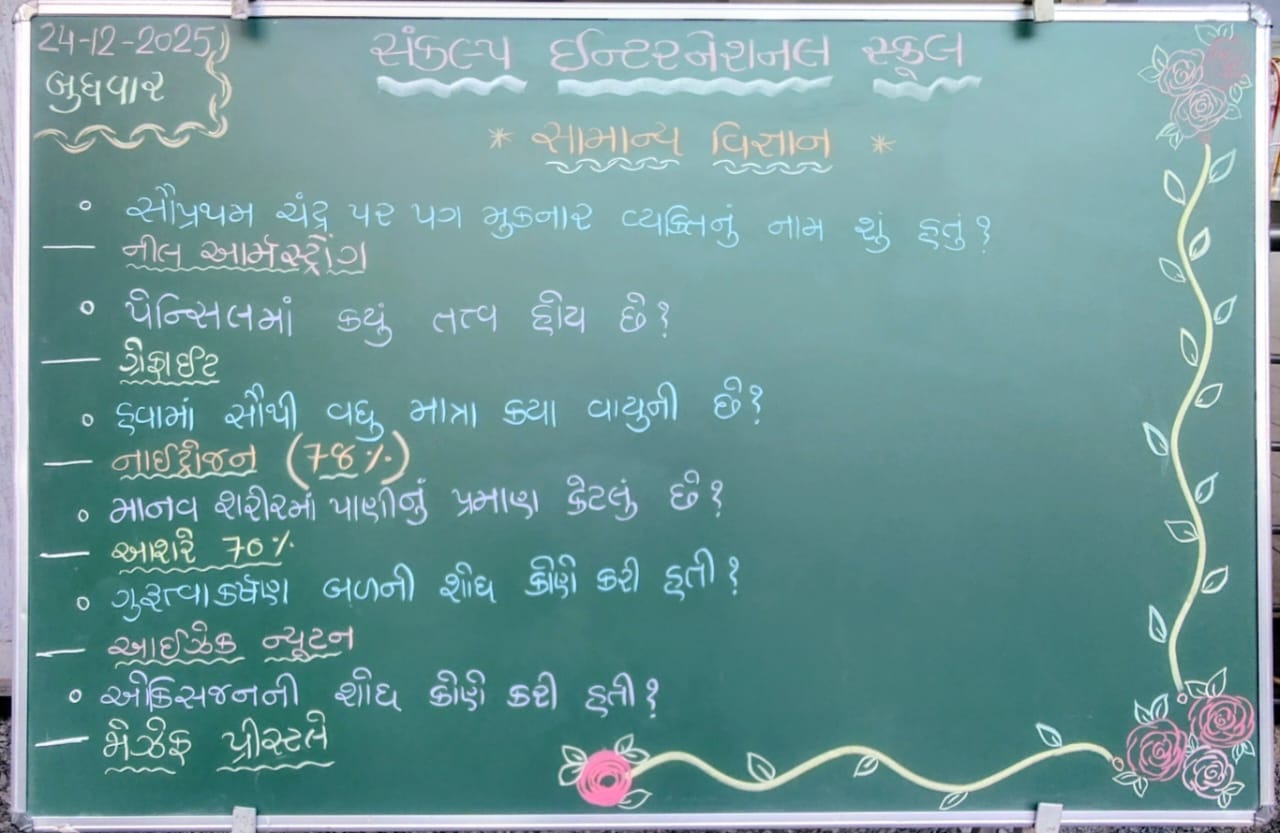 24-12-2025
બુધવાર
સંકલ્પ ઈન્ટરનેશનલ સ્કૂલ
* સામાન્ય વિજ્ઞાન *
◦ સૌપ્રથમ ચંદ્ર પર પગ મુકનાર વ્યક્તિનું નામ શું હતું?
— નીલ આર્મસ્ટ્રોંગ
◦ પેન્સિલમાં કયું તત્વ હોય છે?
— ગ્રેફાઈટ
◦ હવામાં સૌથી વધુ માત્રા કયા વાયુની છે?
— નાઈટ્રોજન (78%)
◦ માનવ શરીરમાં પાણીનું પ્રમાણ કેટલું છે?
— આશરે 70%
◦ ગુરુત્વાકર્ષણ બળની શોધ કોણે કરી હતી?
— આઈઝેક ન્યૂટન
◦ ઓક્સિજનની શોધ કોણે કરી હતી?
— મેઝેફ પ્રીસ્ટલે